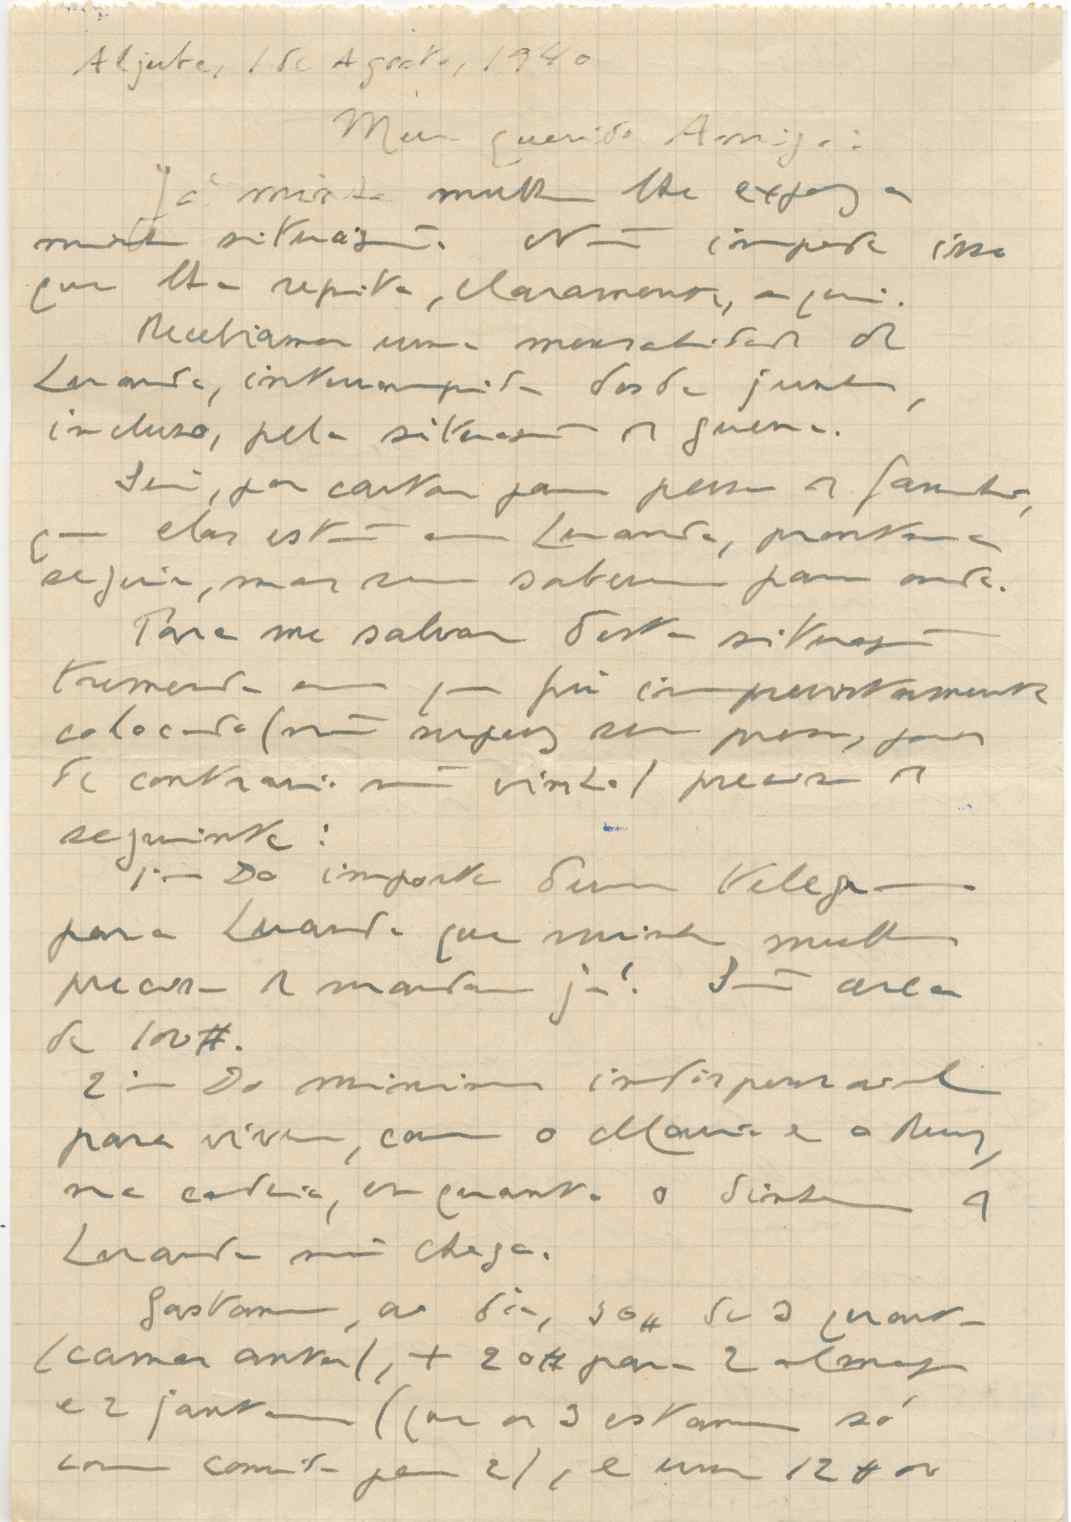 Aljube, 1 de Agosto, 1940
Meu querido Amigo:
Já minha mulher lhe expoz a
minha situação. Não impede isso
que lhe repita, claramente, aqui.
Recebiamos uma mensalidade de
Luanda, interrompida desde junho,
incluso, pela situação de guerra.
Sei, por cartas para pessoa de familia,
que elas estão em Luanda, prontas a
seguir, mas sem saberem para onde.
Para me salvar desta situação
tremenda em que fui imprevistamente
colocado (não supuz ser preso, pois
de contrario não vinha) preciso de
seguinte:
1º — Do importe dum telegrama
para Luanda que minha mulher
precisa de mandar já. São cerca
de 100$.
2º — Do minimo indispensavel
para viver, com o Mario e o Ruy,
na cadeia, enquanto o dinheiro de
Luanda não chega.
Gastamos, ao dia, 30$ de 3 quartos
(camas antes), + 20$ para 2 almoços
e 2 jantares (que os 3 estamos só
com comida para 2), e uns 12$ ou